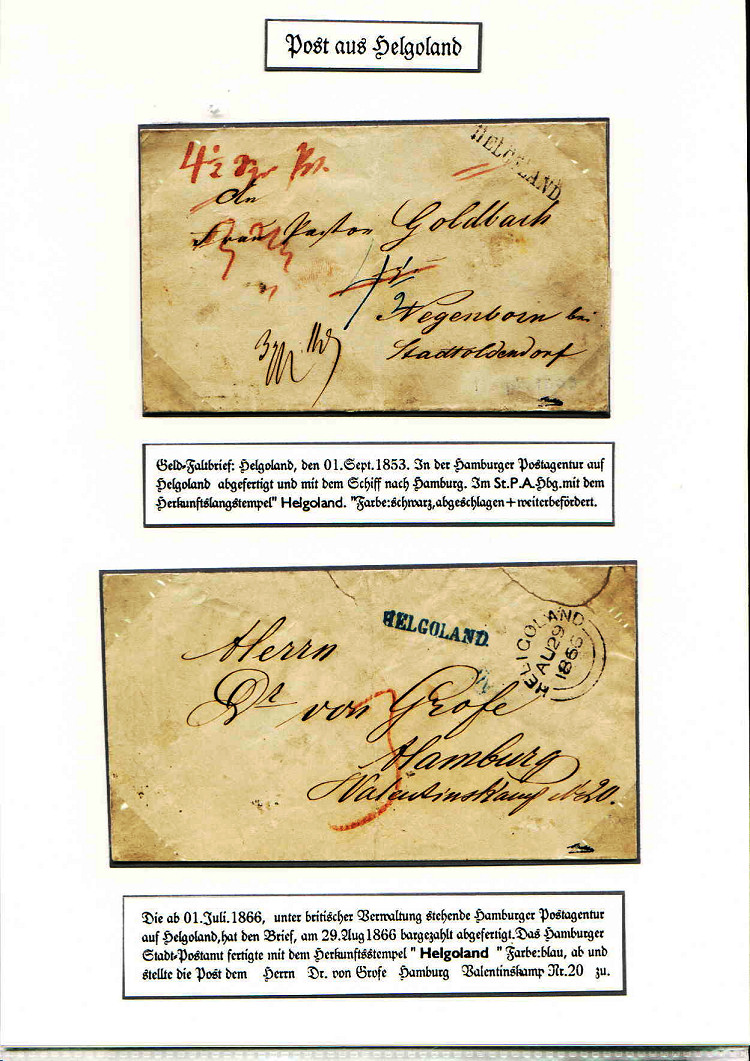 Post aus Helgoland
HELGOLAND
4½ Sgr
An
Frau Pastor Goldbach
Negenborn bei
Stadtoldendorf
Geld-Faltbrief: Helgoland, den 01.Sept.1853. In der Hamburger Postagentur auf
Helgoland abgefertigt und mit dem Schiff nach Hamburg. Im St.P.A.Hbg.mit dem
Herkunftslangstempel" Helgoland. "Farbe:schwarz,abgeschlagen+weiterbefördert.
HELGOLAND.
HELIGOLAND
AU29
1866
Herrn
Dr von Grofe
Hamburg
Valentinskamp No 20.
Die ab 01.Juli.1866, unter britischer Verwaltung stehende Hamburger Postagentur
auf Helgoland,hat den Brief, am 29.Aug1866 bargezahlt abgefertigt.Das Hamburger
Stadt-Postamt fertigte mit dem Herkunftsstempel " Helgoland " Farbe:blau, ab und
stellte die Post dem Herrn Dr. von Grofe Hamburg Valentinskamp Nr.20 zu.